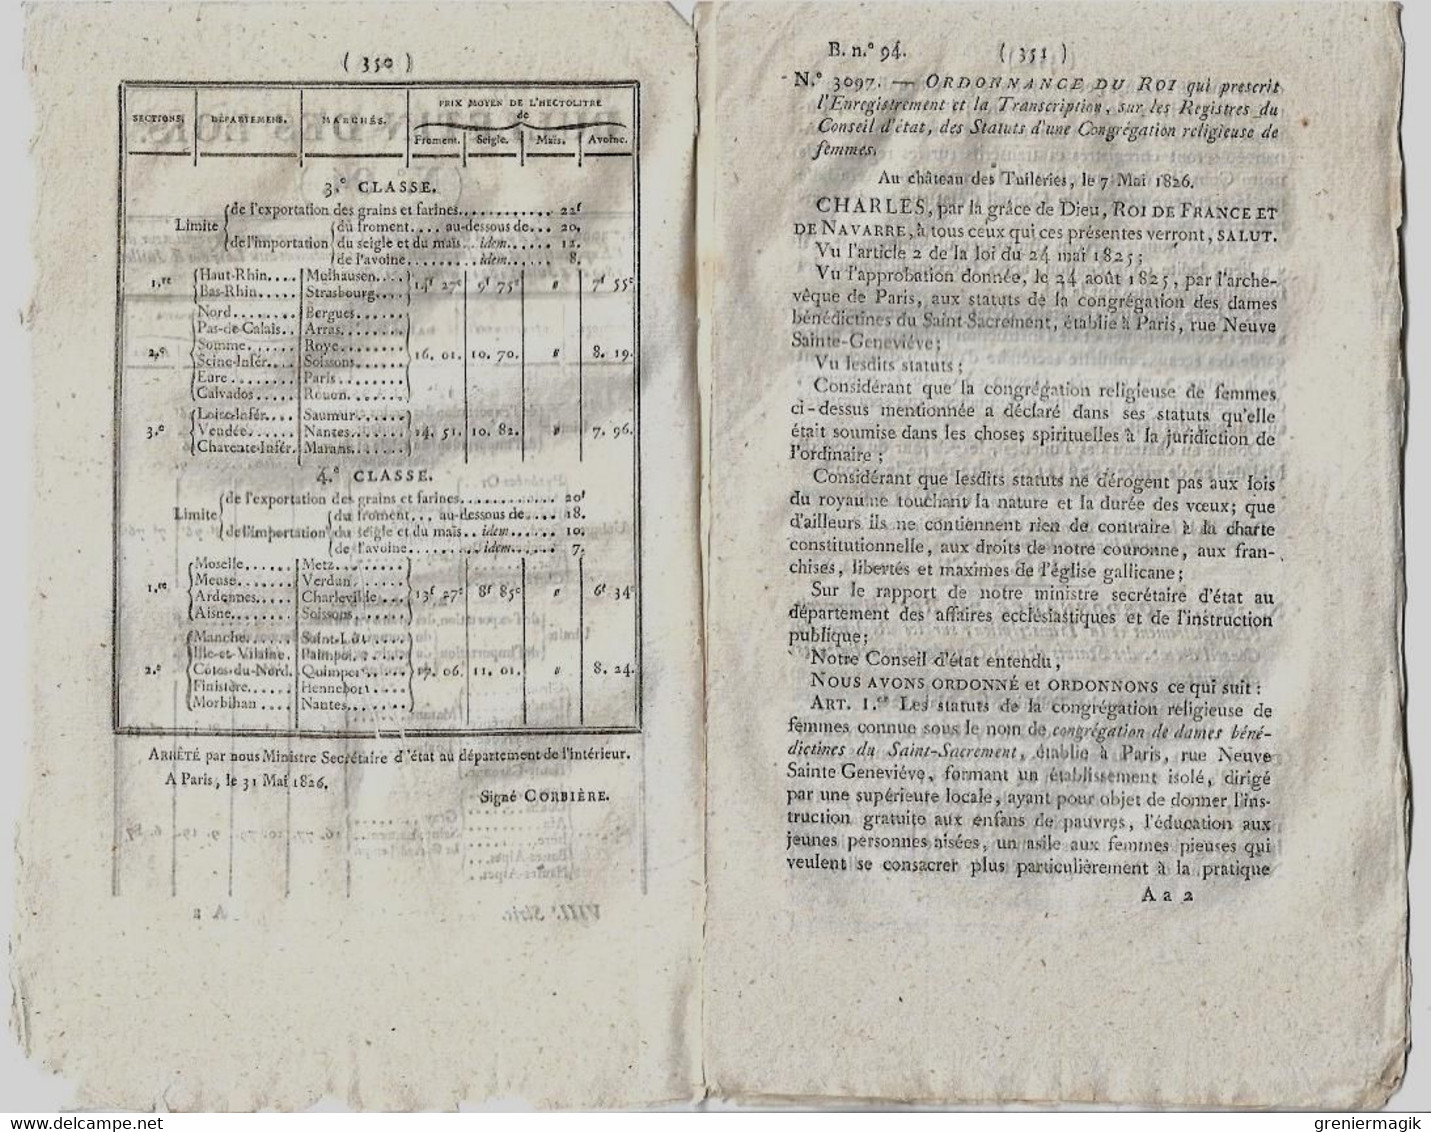 ( 350 )
SECTIONS. DÉPARTEMENS. MARCHÉS. PRIX MOYEN DE L'HECTOLITRE
de
Froment. Seigle. Maïs. Avoine.
3.e CLASSE.
Limite
de l'exportation des grains et farines............ 22f
de l'importation
du froment.... au-dessous de... 20.
du seigle et du maïs... idem...... 12.
de l'avoine......... idem...... 8.
1.re
Haut-Rhin... Mulhausen....
Bas-Rhin..... Strasbourg....
14f 27c 9f 75c " 7f 55c
2.e
Nord....... Bergues......
Pas-de-Calais.. Arras........
Somme..... Roye........
Seine-Infér.... Soissons......
Eure........ Paris........
Calvados..... Rouen........
16. 01. 10. 70. " 8. 19.
3.e
Loire-Infér.... Saumur......
Vendée...... Nantes.......
Charente-Infér. Marans......
14. 51. 10. 82. " 7. 96.
4.e CLASSE.
Limite
de l'exportation des grains et farines............ 20f
de l'importation
du froment... au-dessous de.... 18.
du seigle et du maïs.. idem..... 10.
de l'avoine......... idem...... 7.
1.re
Moselle..... Metz........
Meuse...... Verdun......
Ardennes..... Charleville....
Aisne....... Soissons......
13f 27c 8f 85c " 6f 34c
2.e
Manche..... Saint-Lô.....
Ille-et-Vilaine Paimpol.....
Côtes-du-Nord. Quimper.....
Finistère.... Hennebon.....
Morbihan .... Nantes.......
17. 06. 11. 01. " 8. 24.
ARRÊTÉ par nous Ministre Secrétaire d'état au département de l'intérieur.
A Paris, le 31 Mai 1826.
Signé CORBIÈRE.
B. n.° 94. ( 351 )
N.° 3097. — ORDONNANCE DU ROI qui prescrit
l'Enregistrement et la Transcription, sur les Registres du
Conseil d'état, des Statuts d'une Congrégation religieuse de
femmes.
Au château des Tuileries, le 7 Mai 1826.
CHARLES, par la grâce de Dieu, ROI DE FRANCE ET
DE NAVARRE, à tous ceux qui ces présentes verront, SALUT.
Vu l'article 2 de la loi du 24 mai 1825;
Vu l'approbation donnée, le 24 août 1825, par l'arche-
vêque de Paris, aux statuts de la congrégation des dames
bénédictines du Saint-Sacrement, établie à Paris, rue Neuve
Sainte-Geneviéve;
Vu lesdits statuts;
Considérant que la congrégation religieuse de femmes
ci-dessus mentionnée a déclaré dans ses statuts qu'elle
était soumise dans les choses spirituelles à la juridiction de
l'ordinaire;
Considérant que lesdits statuts ne dérogent pas aux lois
du royaume touchant la nature et la durée des vœux; que
d'ailleurs ils ne contiennent rien de contraire à la charte
constitutionnelle, aux droits de notre couronne, aux fran-
chises, libertés et maximes de l'église gallicane;
Sur le rapport de notre ministre secrétaire d'état au
département des affaires ecclésiastiques et de l'instruction
publique;
Notre Conseil d'état entendu,
NOUS AVONS ORDONNÉ et ORDONNONS ce qui suit:
ART. 1.er Les statuts de la congrégation religieuse de
femmes connue sous le nom de congrégation de dames béné-
dictines du Saint-Sacrement, établie à Paris, rue Neuve
Sainte Geneviéve, formant un établissement isolé, dirigé
par une supérieure locale, ayant pour objet de donner l'ins-
truction gratuite aux enfans de pauvres, l'éducation aux
jeunes personnes aisées, un asile aux femmes pieuses qui
veulent se consacrer plus particulièrement à la pratique
A a 2
www.delcampe.net
greniermagik